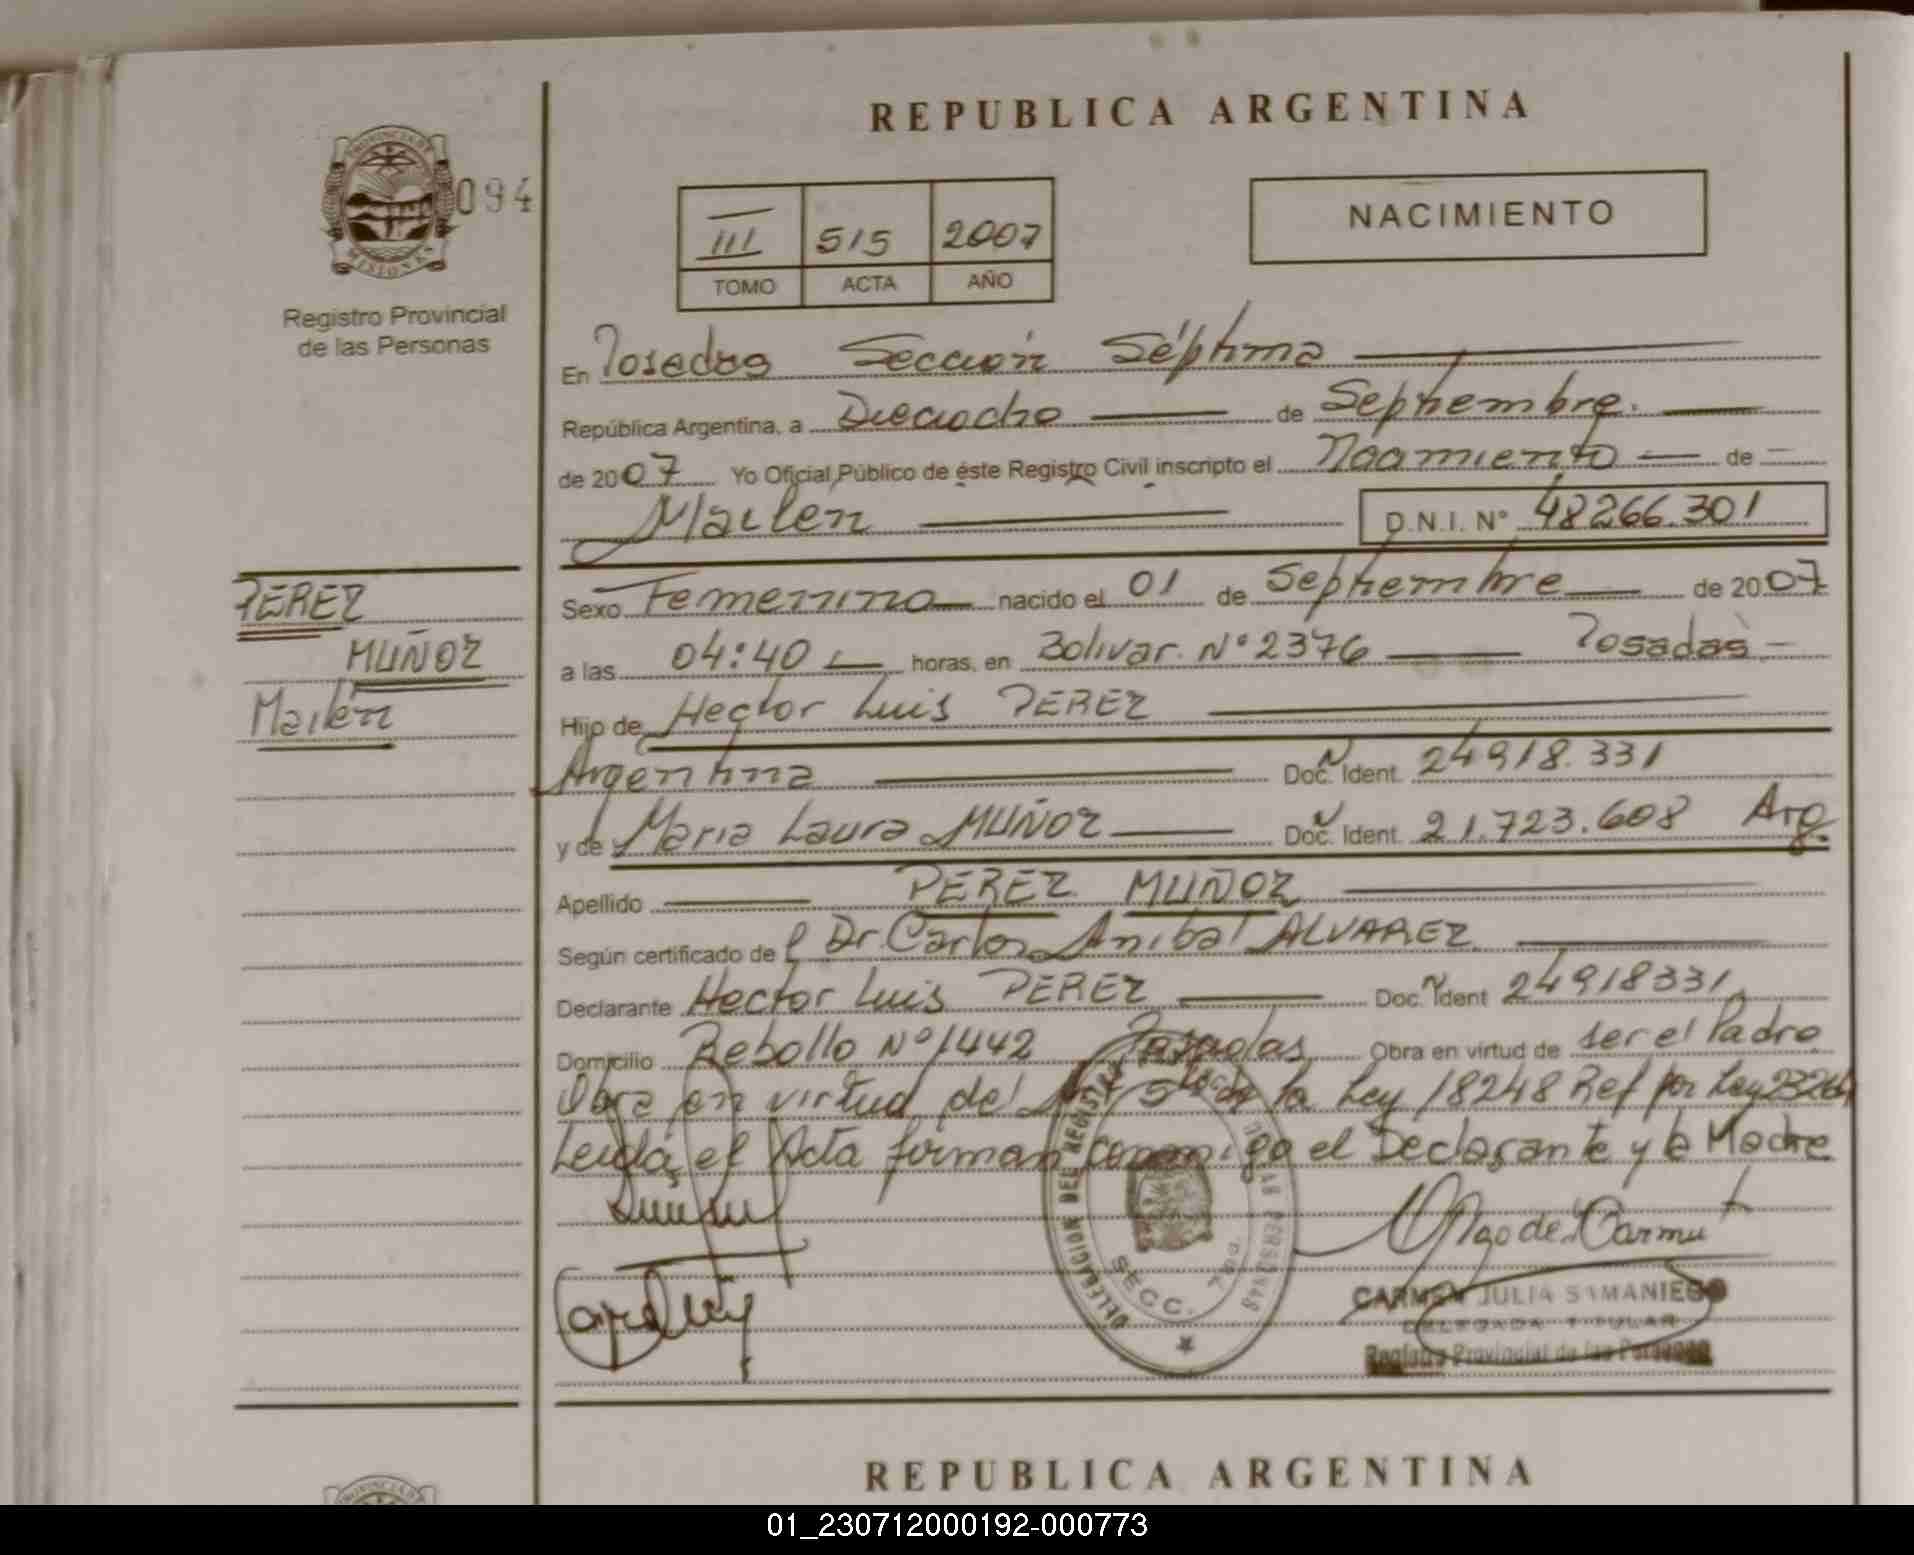 REPUBLICA ARGENTINA
PROVINCIA DE
MISIONES
094
Registro Provincial
de las Personas
III 515 2007
TOMO ACTA AÑO
NACIMIENTO
En Posadas Sección Séptima
República Argentina, a Dieciocho de Septiembre.
de 2007 Yo Oficial Público de éste Registro Civil inscripto el Nacimiento de
Mailén D.N.I. N° 48266.301
PEREZ
MUÑOZ
Mailén
Sexo Femenino nacido el 01 de Septiembre de 2007
a las 04:40 horas, en Bolivar. N° 2376 Posadas
Hijo de Hector Luis PEREZ
Argentina Doc. Ident. 24918.331
y de Maria Laura MUÑOZ Doc. Ident. 21.723.608 Arg.
Apellido PEREZ MUÑOZ
Según certificado del Dr. Carlos Anibal ALVAREZ
Declarante Hector Luis PEREZ Doc. Ident 24918331
Domicilio Rebollo N° 1442 Posadas Obra en virtud de ser el Padre
Obra en virtud del Art 5 de la Ley 18248 Ref por Ley 23264
Leida el Acta firman conmigo el Declarante y la Madre
DELEGACION DEL REGISTRO DE LAS PERSONAS
SECC. 7ma.
CARMEN JULIA SAMANIEGO
DELEGADA TITULAR
Registro Provincial de las Personas
REPUBLICA ARGENTINA
PROVINCIA DE
01_230712000192-000773